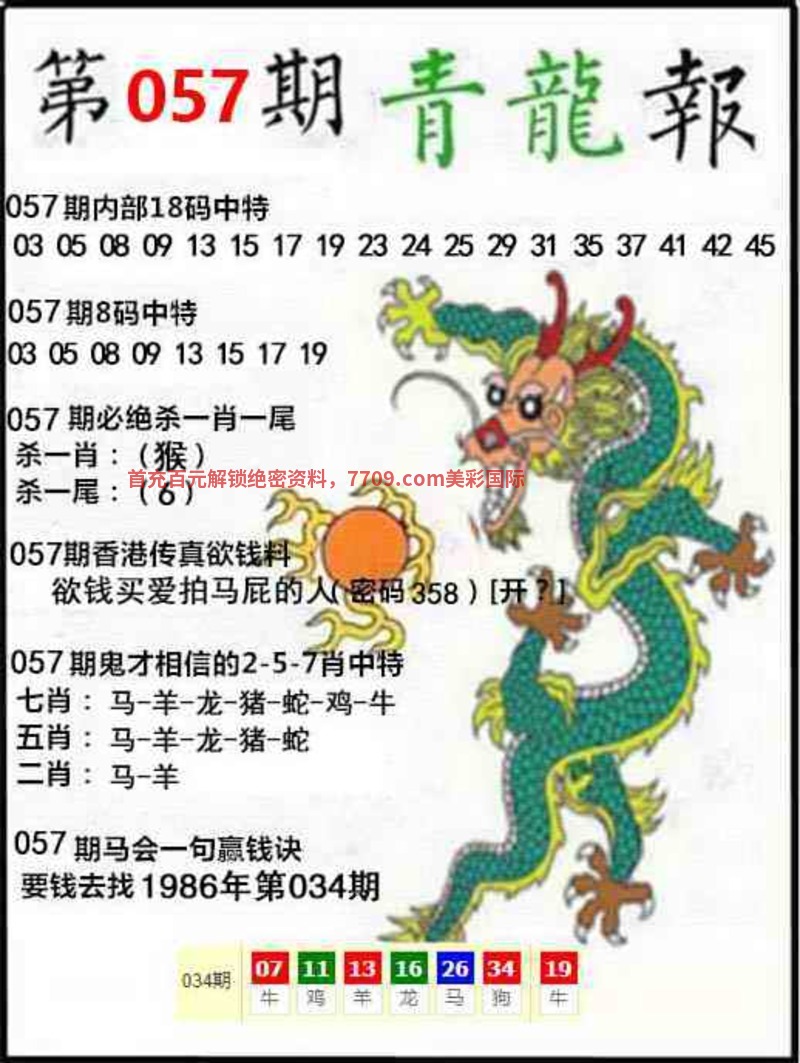 第057期 青龍報
057期内部18码中特
03 05 08 09 13 15 17 19 23 24 25 29 31 35 37 41 42 45
057期8码中特
03 05 08 09 13 15 17 19
057期必绝杀一肖一尾
杀一肖：（猴）
首充百元解锁绝密资料，7709.com美彩国际
杀一尾：（6）
057期香港传真欲钱料
欲钱买爱拍马屁的人（密码358）[开？]
057期鬼才相信的2-5-7肖中特
七肖：马-羊-龙-猪-蛇-鸡-牛
五肖：马-羊-龙-猪-蛇
二肖：马-羊
057期马会一句赢钱诀
要钱去找1986年第034期
034期 07 11 13 16 26 34 19
牛 鸡 羊 龙 马 狗 牛